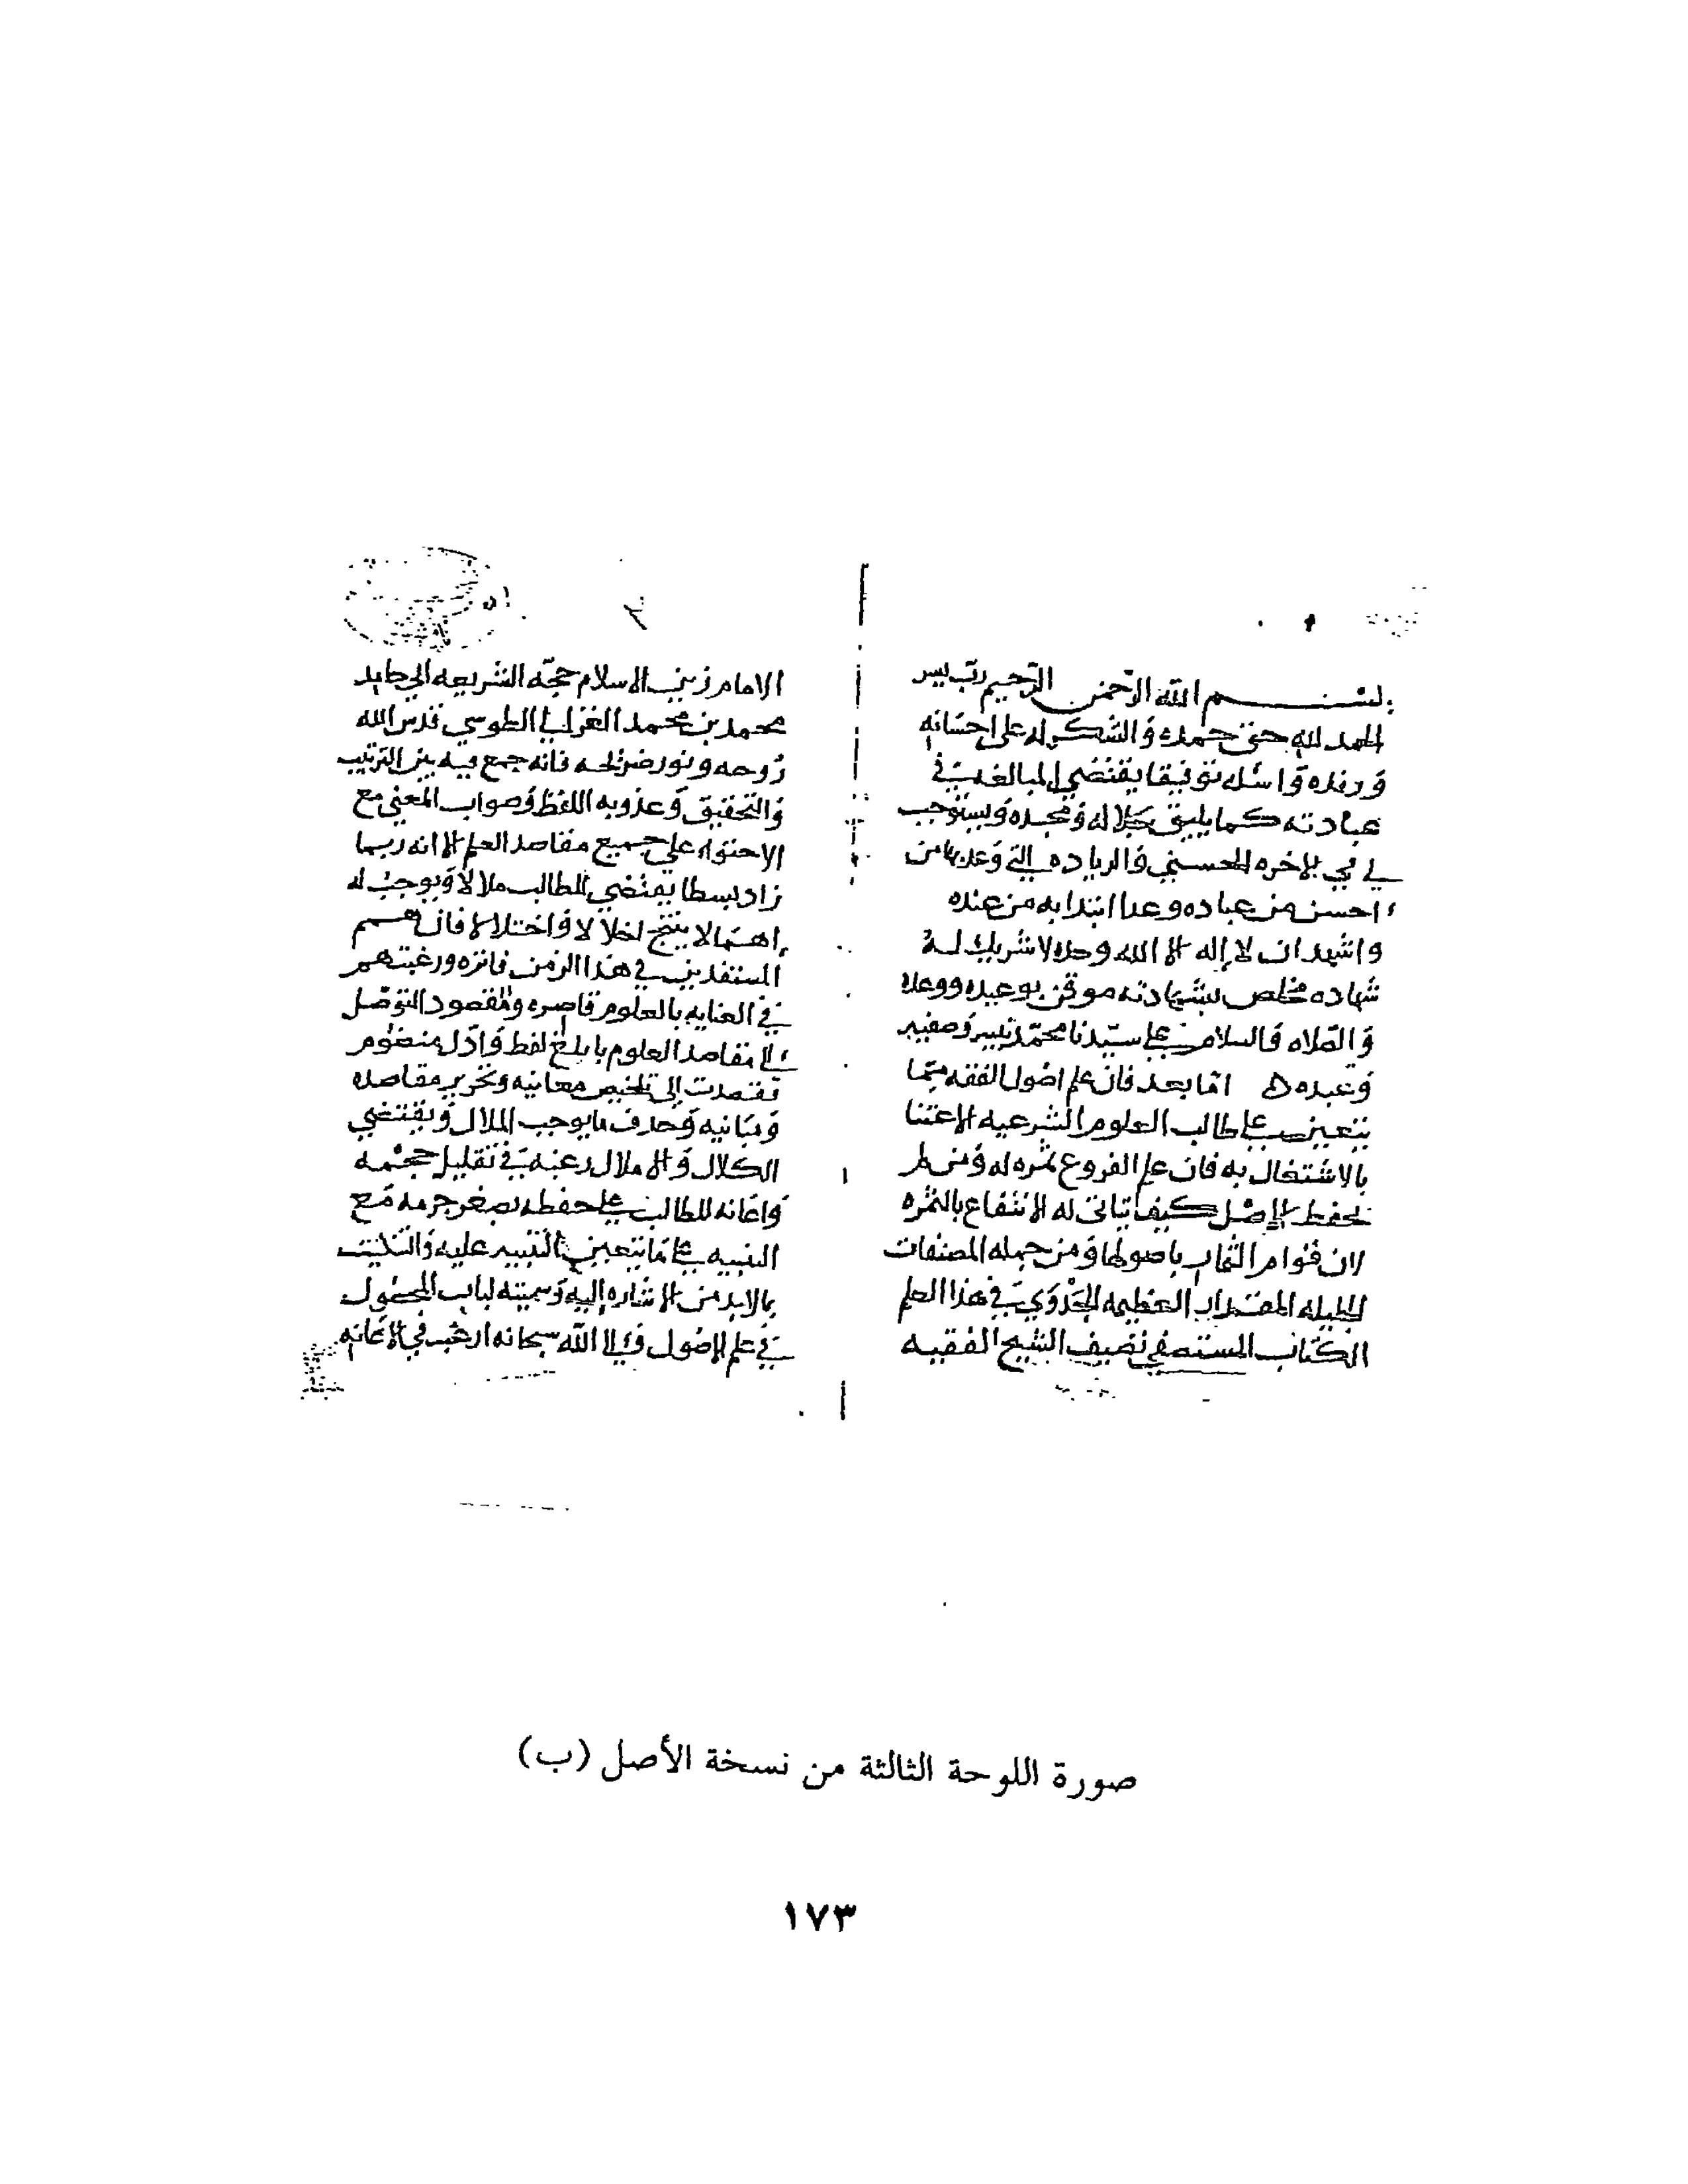 بسم الله الرحمن الرحيم رب يسر
الحمد لله حق حمده والشكر له على احسانه
ورفده واسئله توفيقا يقتضي المبالغه في
عبادته كما يليق بجلاله ومجده ويستوجب
في الاخره الحسنى والزياده التي وعد بها من
احسن من عباده وعدا ابتدا به من عنده
واشهد ان لا إله الا الله وحده لا شريك له
شهاده مخلص بشهادته موقن بوعيده ووعده
والصلاه والسلام على سيدنا محمد نبيه وصفيه
وعبده اما بعد فان علم اصول الفقه مما
يتعين على طالب العلوم الشرعيه الاعتنا
بالاشتغال به فان علم الفروع ثمره له ومن لم
يحفظ الاصل كيف يتاتى له الانتفاع بالثمره
لان قوام الثمار باصولها ومن جمله المصنفات
الجليله المقدار العظيمه الجدوي في هذا العلم
الكتاب المستصفى تصنيف الشيخ الفقيه
الامام زين الاسلام حجة الشريعه ابي حامد
محمد بن محمد الغزالي الطوسي قدس الله
روحه ونور ضريحه فانه جمع فيه بين الترتيب
والتحقيق وعذوبه اللفظ وصواب المعنى مع
الاحتواء علي جميع مقاصد العلم الا انه ربما
زاد بسطا يقتضي للطالب ملالا ويوجب له
اهمالا ينتج اخلالا واختلالا فان همم
المستفدين في هذا الزمن فاتره ورغبتهم
في العنايه بالعلوم قاصره والمقصود التوصل
الى مقاصد العلوم بابلغ لفظ وادل منظوم
فقصدت إلى تلخيص معانيه وتحرير مقاصده
ومبانيه وحذف ما يوجب الملال ويقتضي
الكلال والاملال رغبة في تقليل حجمه
واعانه للطالب على حفظه بصغر جرمه مع
التنبيه على ما يتعين التنبيه عليه والتنكيت
بما لابد من الاشاره إليه وسميته لباب المحصول
في علم الاصول والى الله سبحانه ارغب في الاعانه
صورة اللوحة الثالثة من نسخة الأصل (ب)
١٧٣